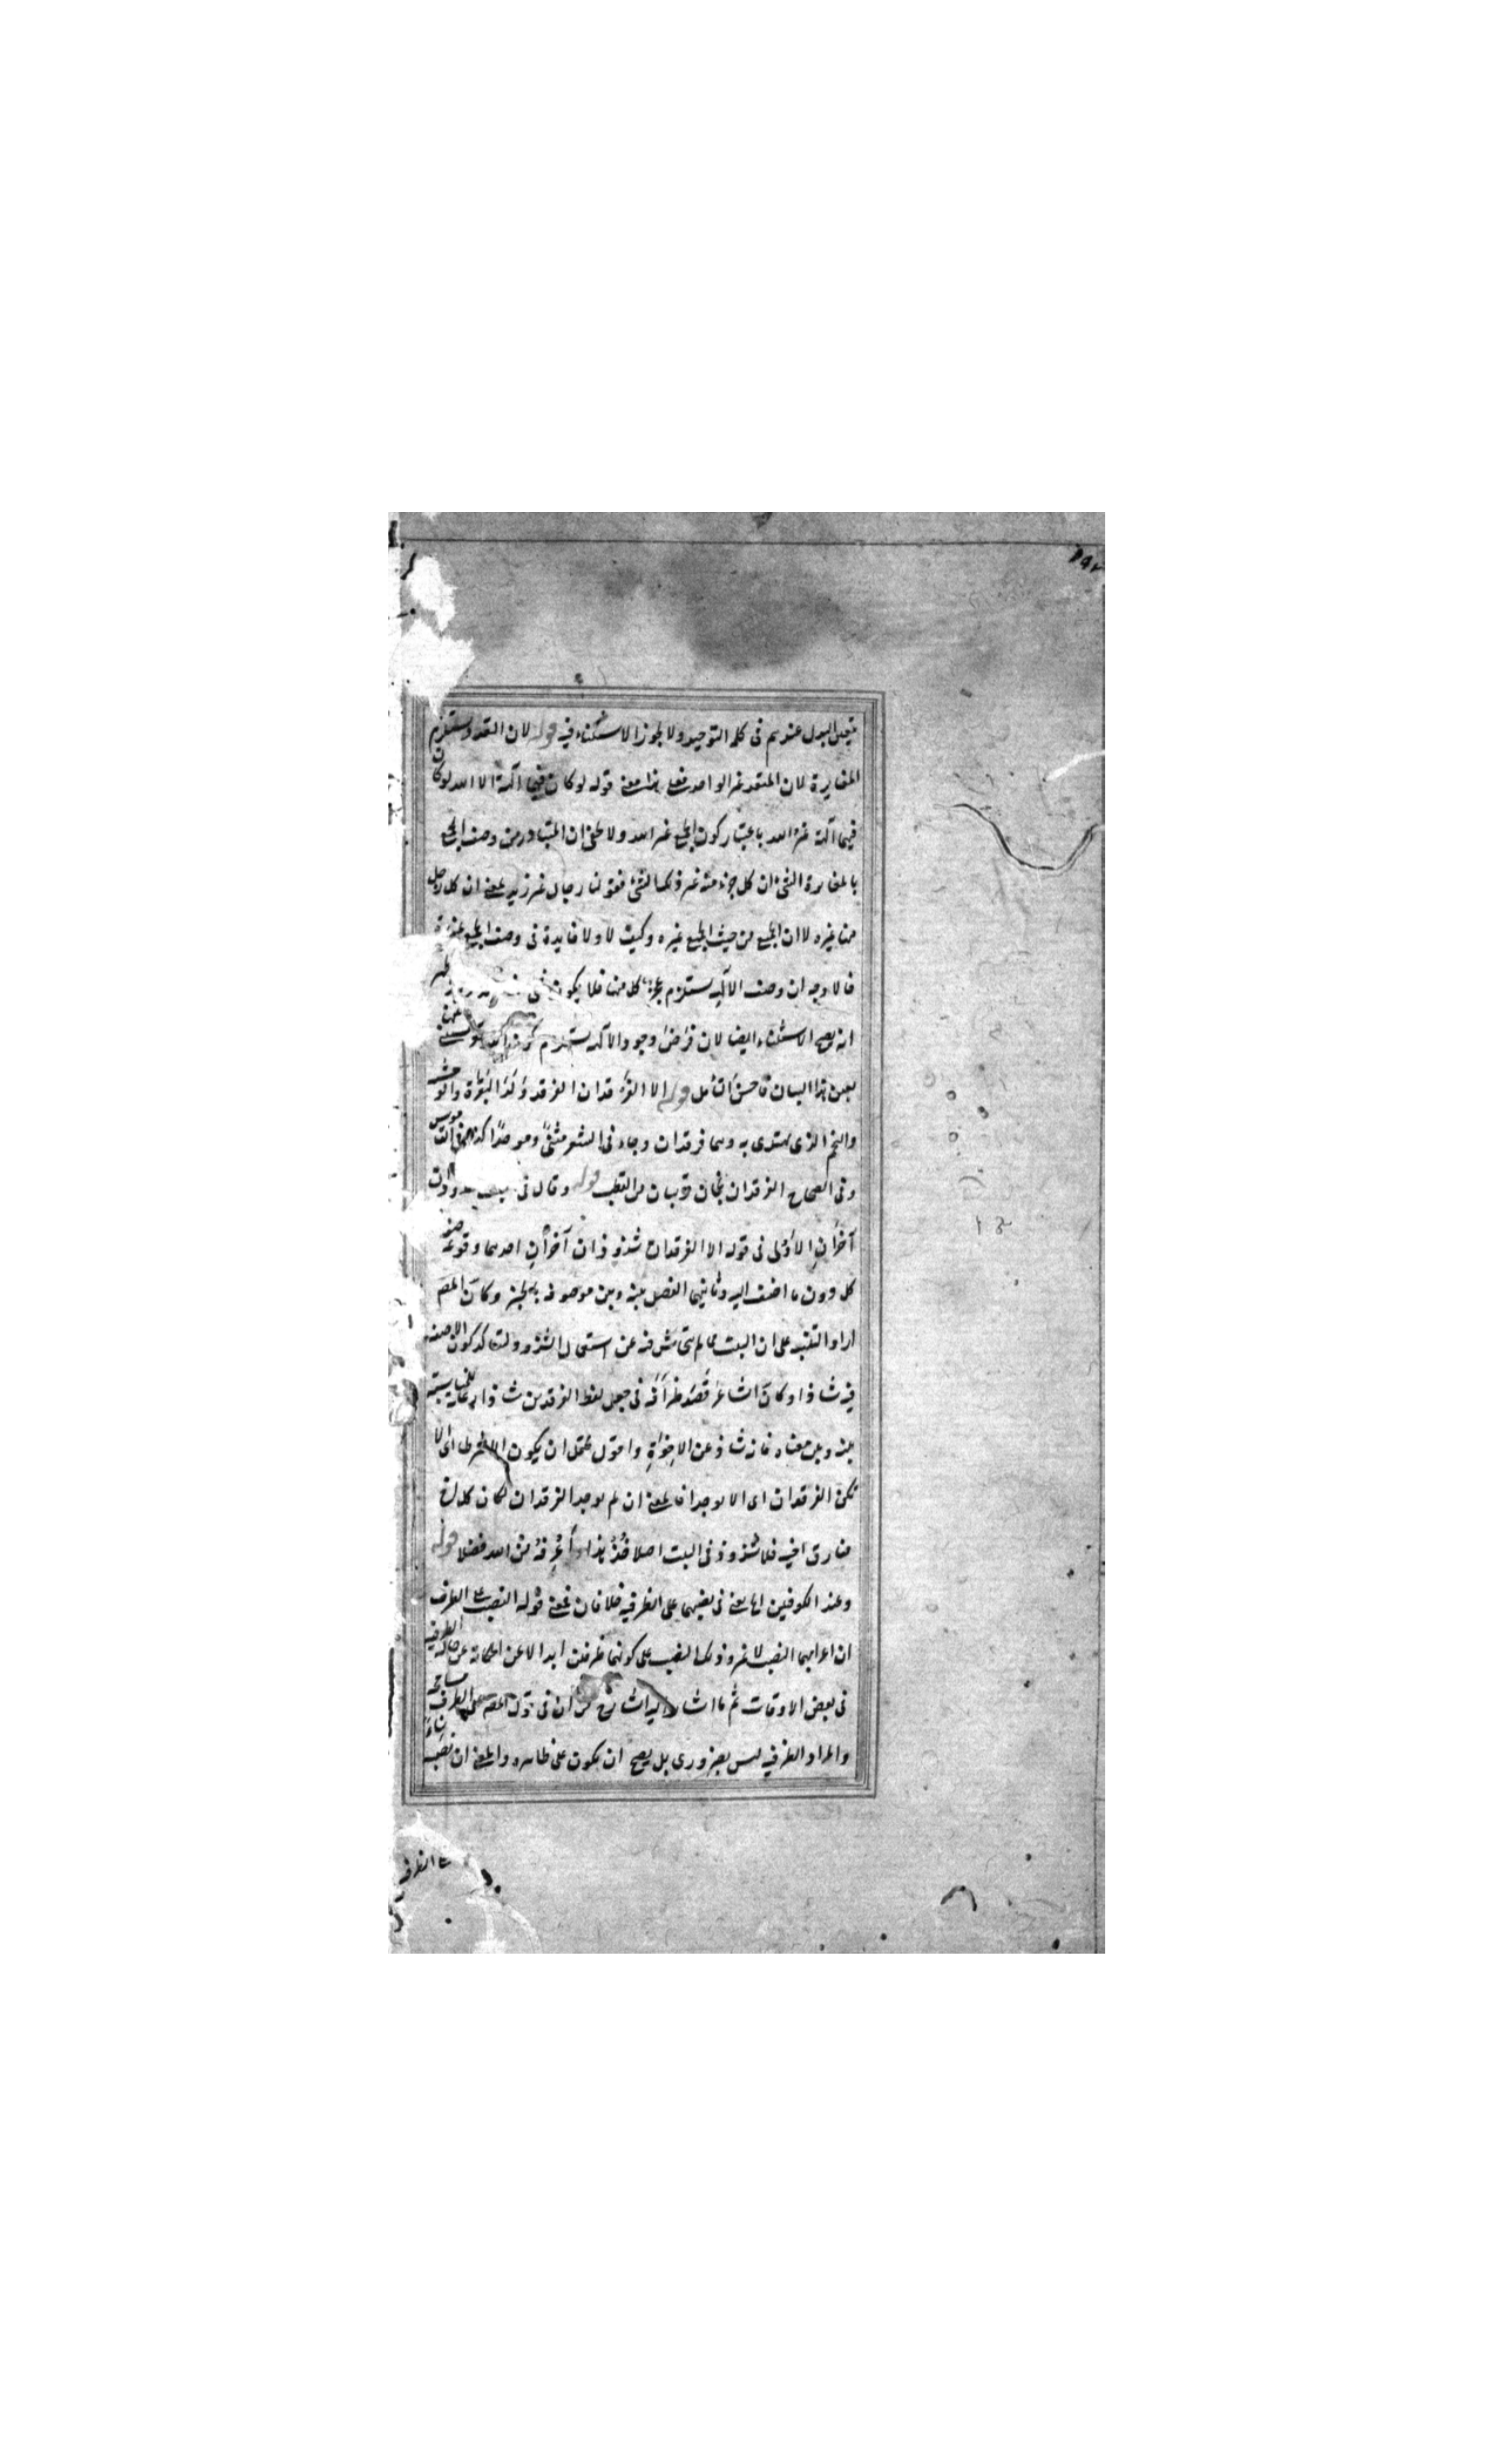 يتعين البدل عندهم فى كلمة التوحيد ولا يجوز الاستثناء فيه قوله لان التعدد يستلزم
المغايرة لان المتعدد غير الواحد فعلى هذا معنى قوله لو كان فيهما آلهة الا الله لو كان
فيهما آلهة غير الله باعتبار كون الجمع غير الله ولا يخفى ان المتبادر من وصف الجمع
بالمغايرة لشئ ان كل جزء منه غير ذلك الشئ فقولنا رجال غير زيد بمعنى ان كل رجل
منا غيره لا ان الجمع من حيث الجمع غيره وكيف لا ولا فايدة فى وصف الجمع
فالاوجه ان وصف الآلهة يستلزم كل منها فلا يكون
انه يصح الاستثناء ايضا لان فرض وجود الآلهة يستلزم كون
بعين هذا البيان فاحسن التأمل قوله الا الفرقدان الفرقد ولد البقرة والوحش
والنجم الذى يهتدى به وهما فرقدان وجاء فى الشعر مثنى وموحدا كذا فى القاموس
وفى الصحاح الفرقدان نجمان قريبان من القطب قوله وقال فى
آخران الاولى فى قوله الا الفرقدان شذوذان آخران احدهما وقوعه صفة
كل دون ما اضيف اليه وثانيهما الفصل بينه وبين موصوفه بالخبر وكان المص
اراد التنبيه على ان البيت مما لم يتحاش فيه عن استعمال الشذوذ ولتأكد كون الا صفة
فيه شاذا وكان الشاعر قصد ظرافة فى جعل لفظ الفرقدين شاذا رعاية للمناسبة
بينه وبين معناه فانه شاذ عن الاخوة واقول يحتمل ان يكون الا للشرط اى الا
يكن الفرقدان اى الا يوجدا فالمعنى ان لم يوجد الفرقدان لكان كل اخ
مفارق اخيه فلا شذوذ فى البيت اصلا فخذ هذا واعرفه من الله فضلا قوله
وعند الكوفيين نصبهما على الظرفية فلا فان معنى قوله النصب على الظرف
ان اعرابهما النصب لا غير وذلك النصب على كونهما ظرفين ابدا لا عن الظرفية
فى بعض الاوقات ثم ما اشار اليه الشارح من ان فى قول المص على الظرف مسامحة
والمراد الظرفية ليس بضرورى بل يصح ان يكون على ظاهره والمعنى ان نصبه